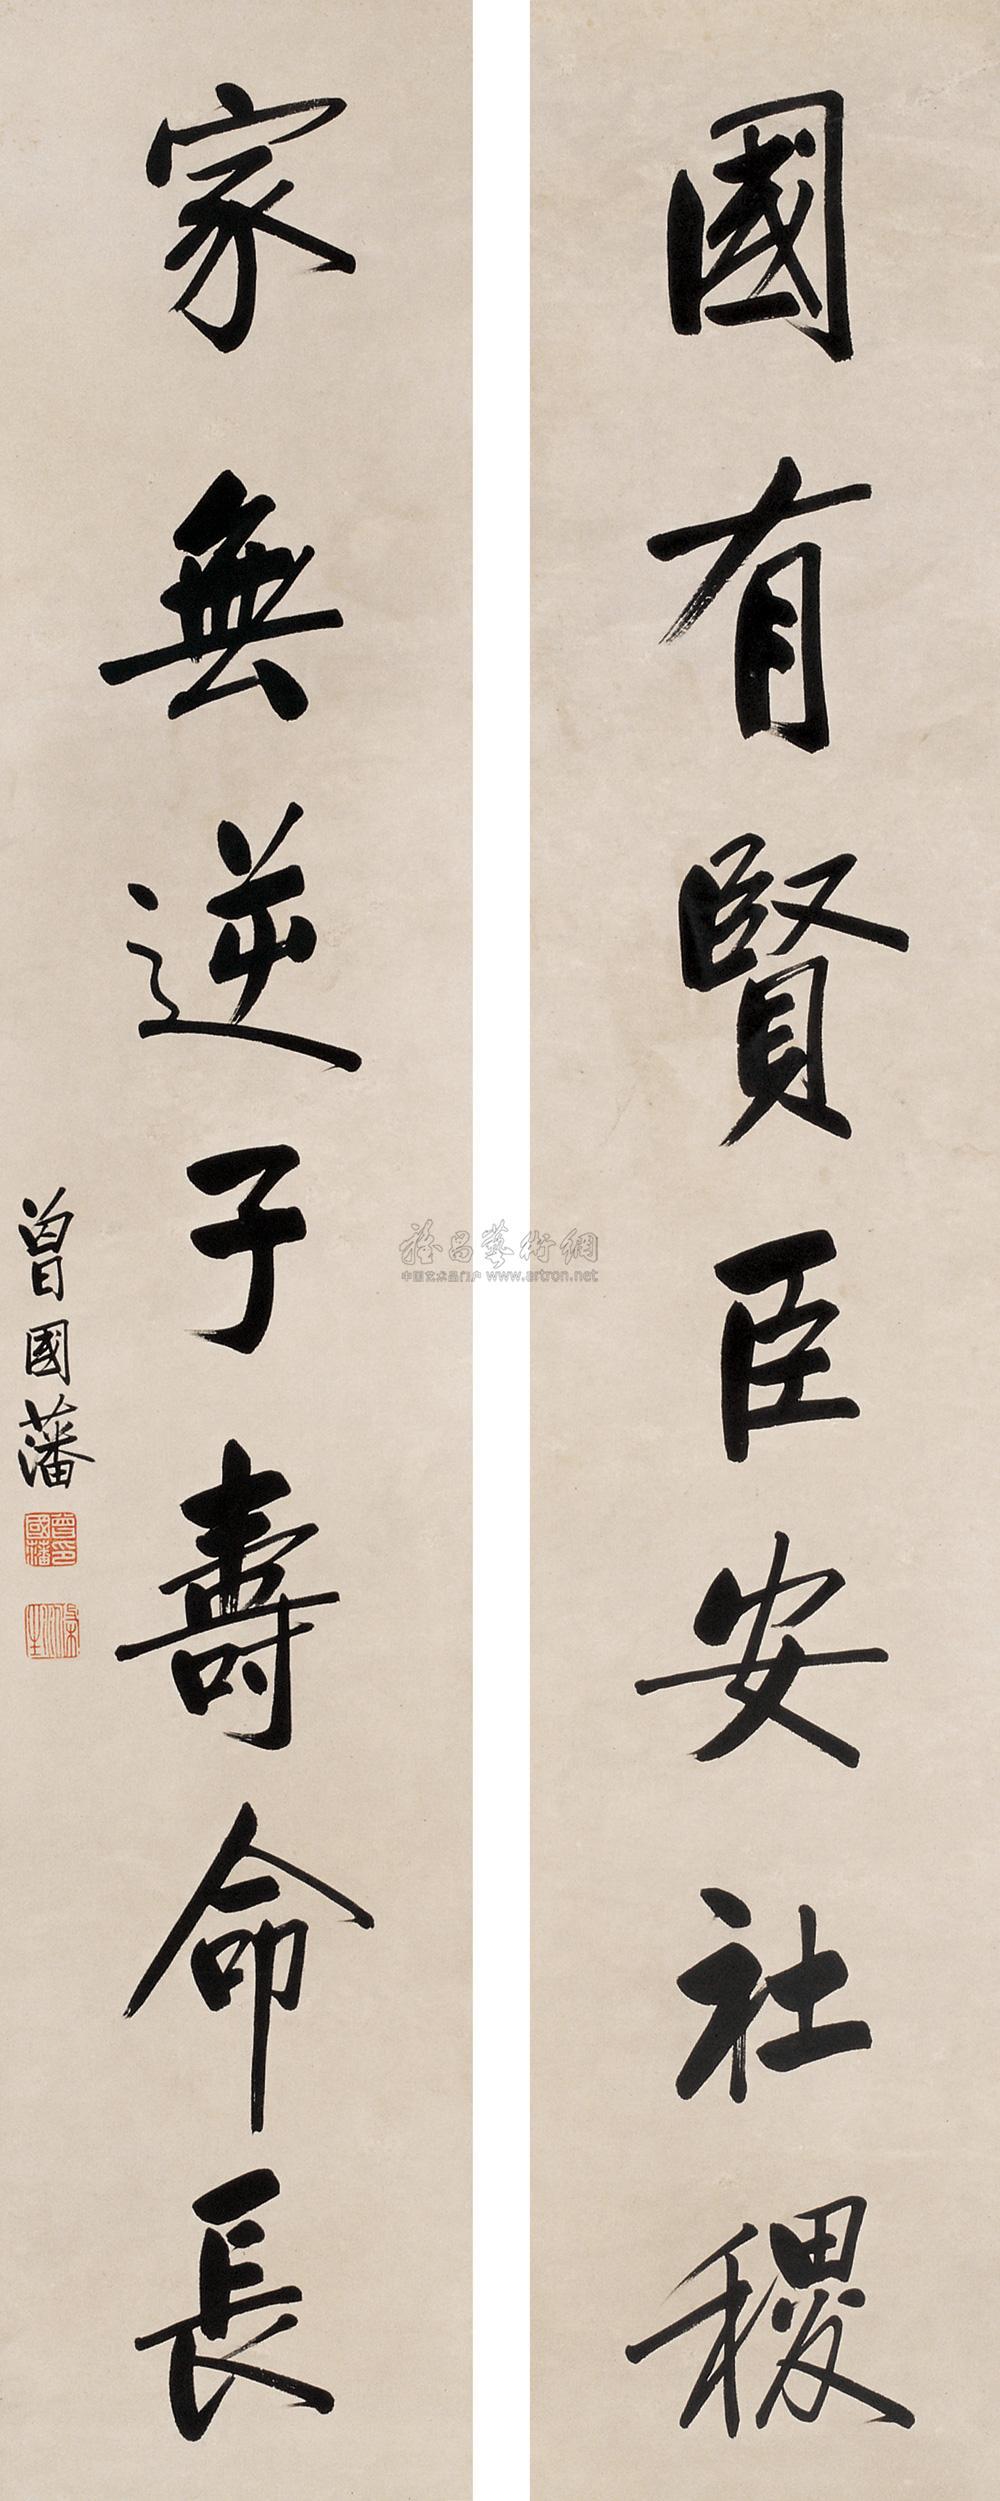 國有賢臣安社稷
家無逆子壽命長
曾國藩
曾印國藩
雅昌藝術網
中国艺术品门户 www.artron.net